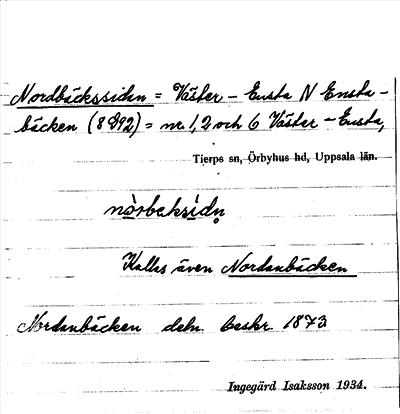 Nordbäckssidan = Väster - Ensta N Ensta-
bäcken (8 D92) = nr 1, 2 och 6 Väster - Ensta,
Tierps sn, Örbyhus hd, Uppsala län.
nòrbaksìdn̥
Kallas även Nordanbäcken
Nordanbäcken deln. beskr. 1873
Ingegärd Isaksson 1934.